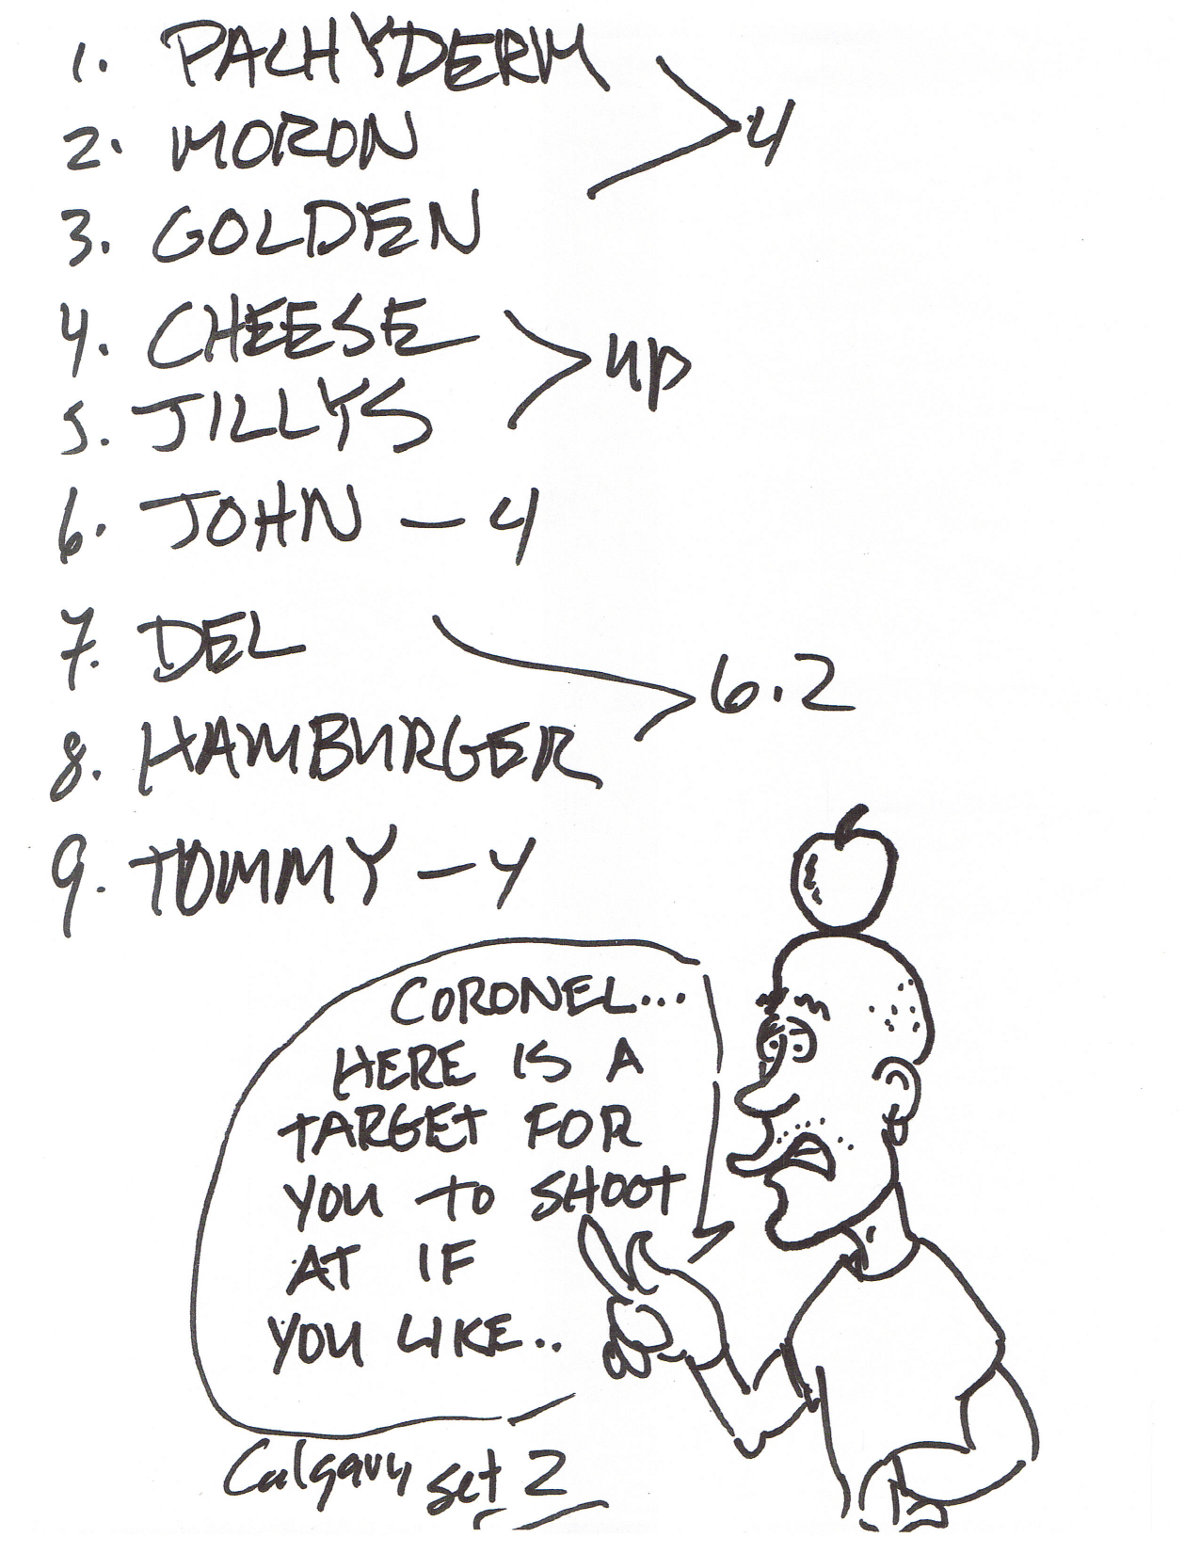 1. PACHYDERM
2. MORON
4
3. GOLDEN
4. CHEESE
up
5. JILLYS
6. JOHN - 4
7. DEL
6.2
8. HAMBURGER
9. TOMMY - 4
CORONEL...
HERE IS A
TARGET FOR
YOU TO SHOOT
AT IF
YOU LIKE..
Calgary set 2